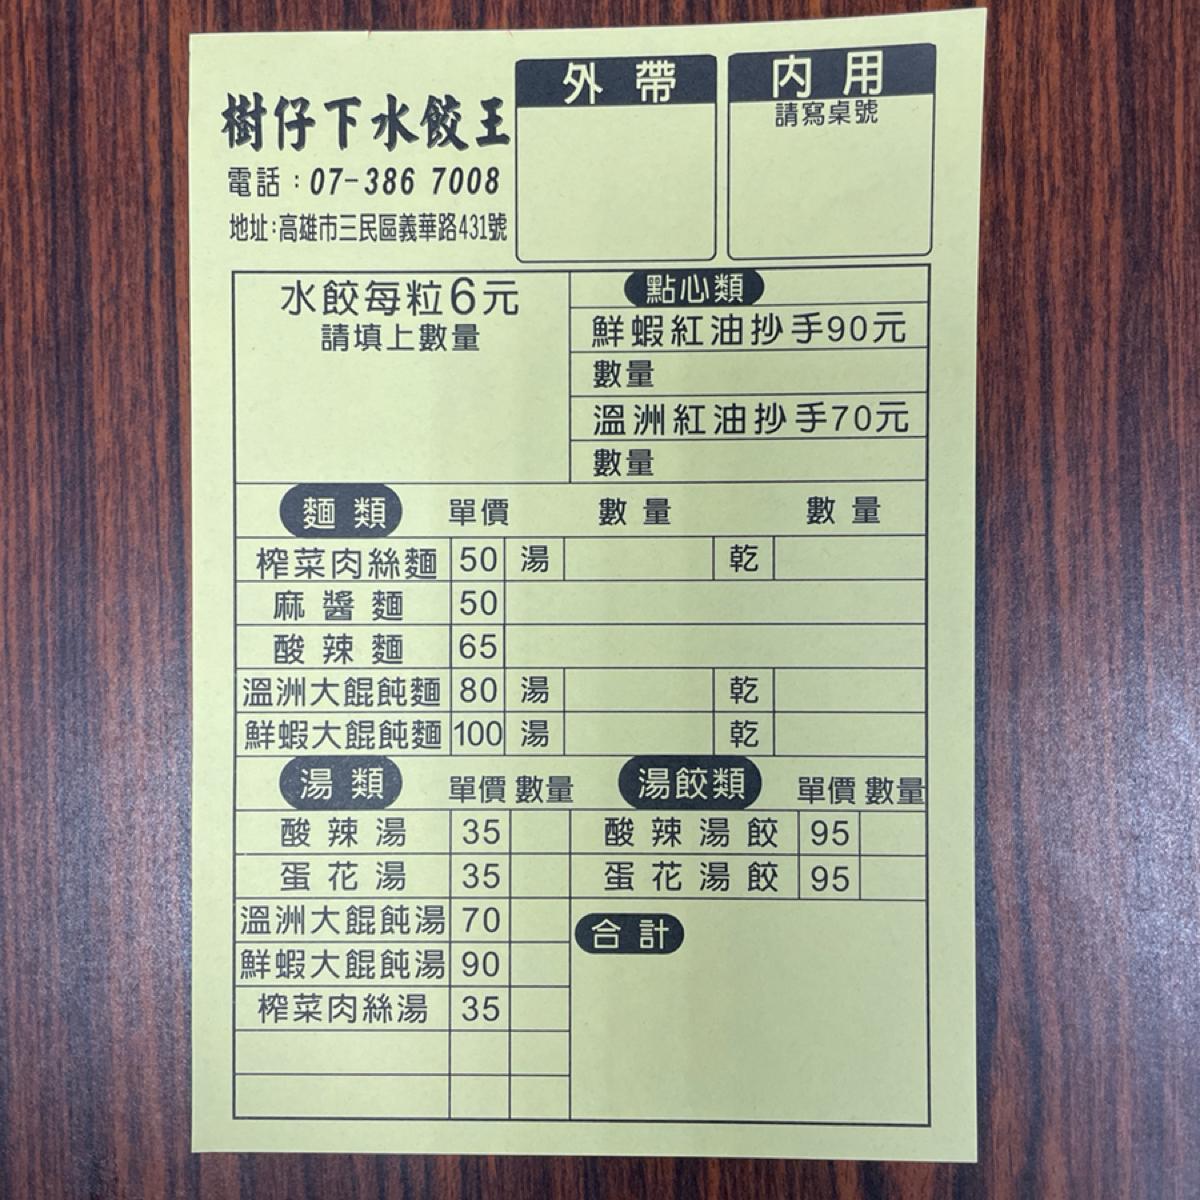 樹仔下水餃王
電話：07-386 7008
地址:高雄市三民區義華路431號
外帶
內用
請寫桌號
水餃每粒6元
請填上數量
點心類
鮮蝦紅油抄手90元
數量
溫洲紅油抄手70元
數量
麵類 單價 數量 數量
榨菜肉絲麵 50 湯 乾
麻醬麵 50
酸辣麵 65
溫洲大餛飩麵 80 湯 乾
鮮蝦大餛飩麵 100 湯 乾
湯類 單價 數量
酸辣湯 35
蛋花湯 35
溫洲大餛飩湯 70
鮮蝦大餛飩湯 90
榨菜肉絲湯 35
湯餃類 單價 數量
酸辣湯餃 95
蛋花湯餃 95
合計